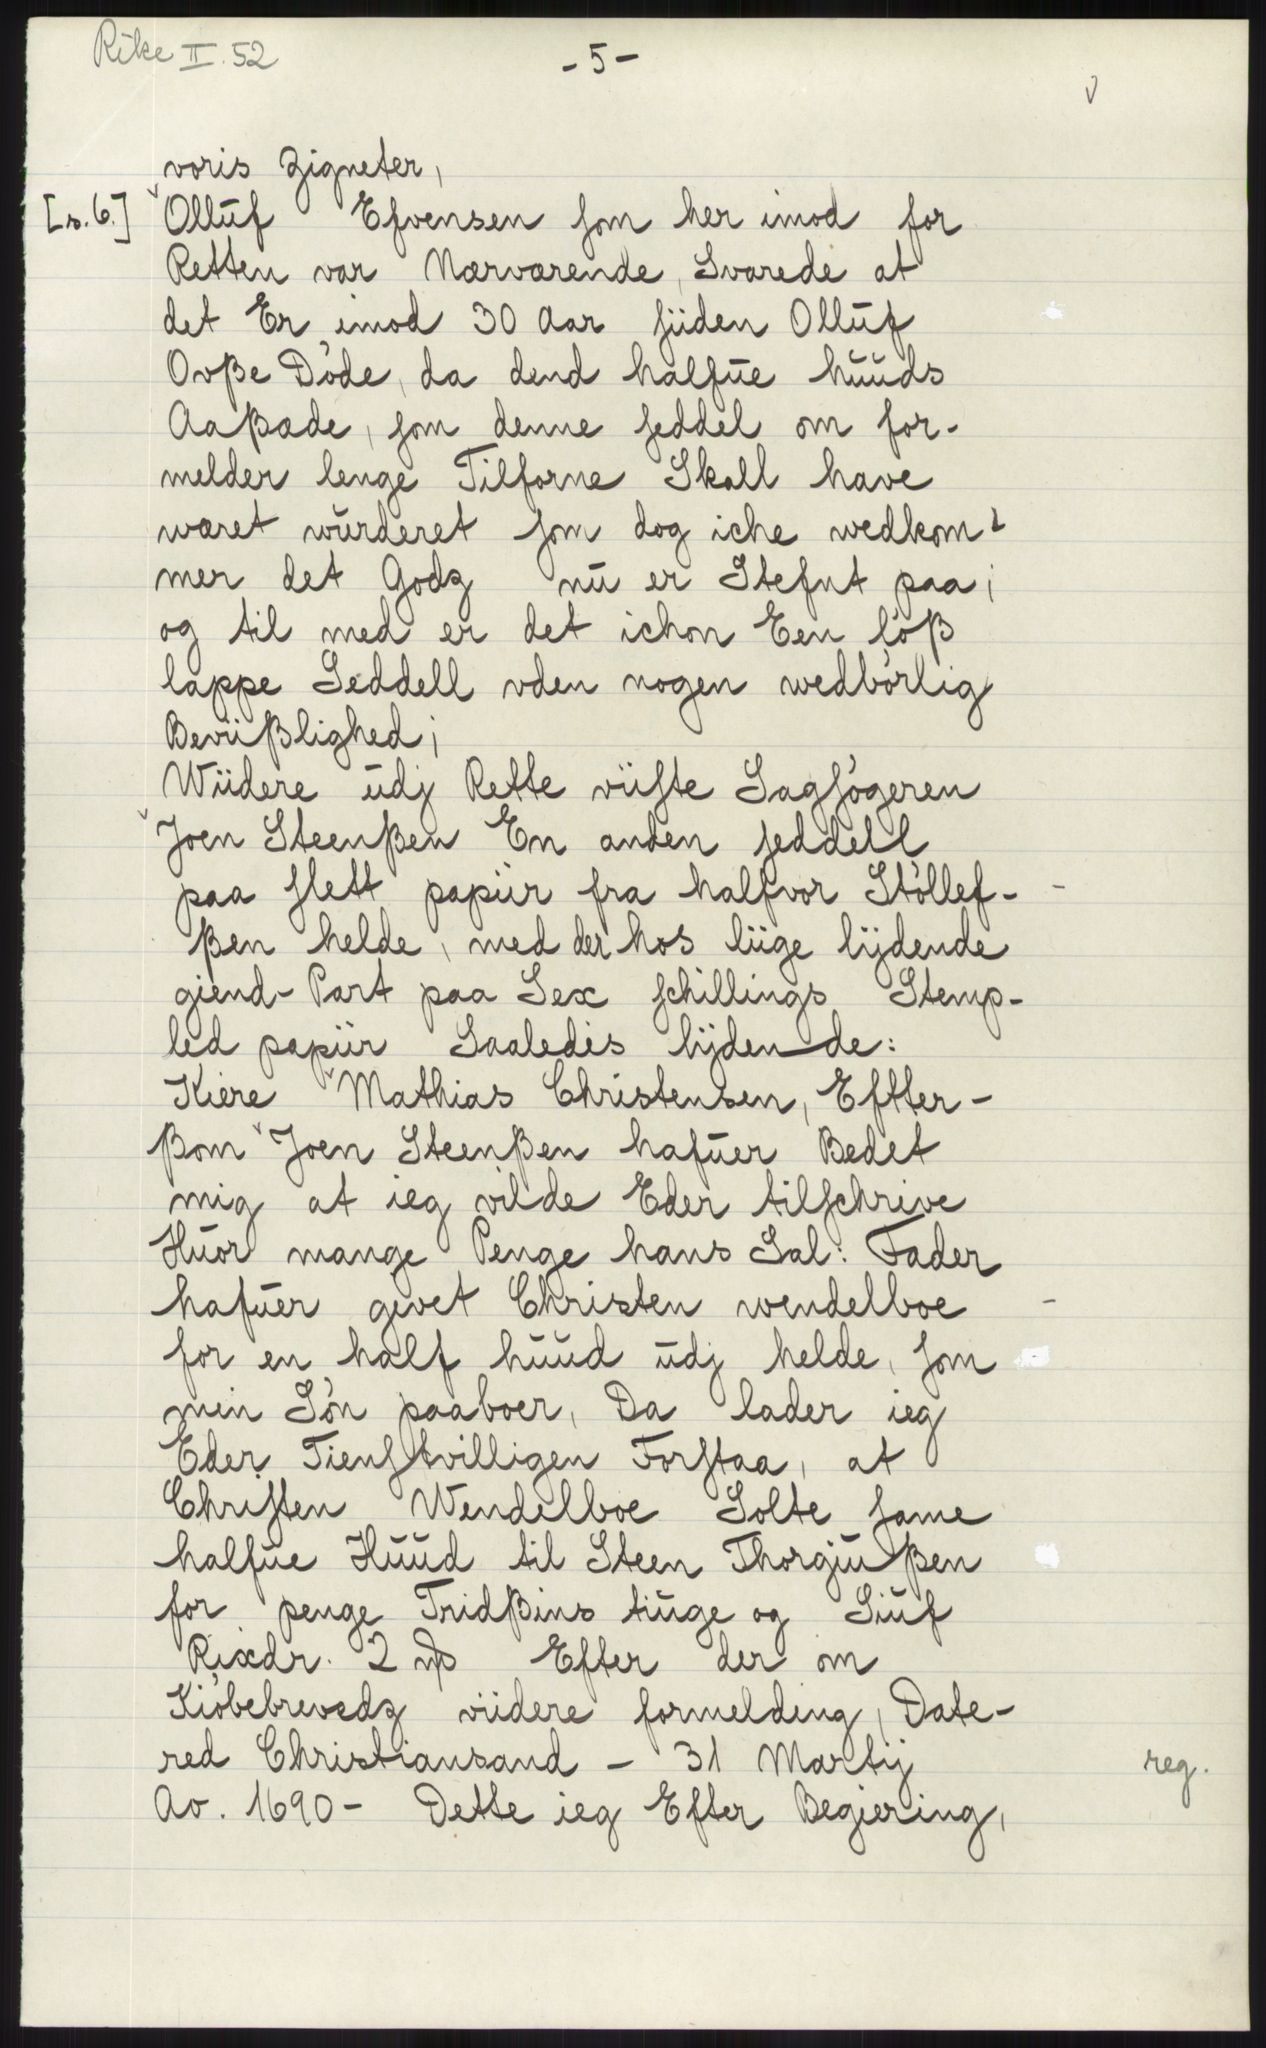 Rike II. 52
- 5 -
voris Zigneter,
[s. 6.] Olluf Efvensen som her imod for
Retten var Nærværende, Svarede at
det Er imod 30 Aar siiden Olluf
Ovße Döde, da dend halfue huuds
Aaßæde, som denne seddel om for-
melder lenge Tilforne Skall have
wæret wurderet som dog iche wedkom-
mer det Godz nu er Stefnt paa;
og til med er det ichon Een löß
lappe Seddell vden nogen wedbörlig
Beviißlighed;
Wiidere udj Rette viiste Sagsögeren
Joen Steenßen En anden seddell
paa slett papiir fra halfvor Stöllef-
ßen helde, med der hos liige lijdende
giend-Part paa Sex schillings Stemp-
led papiir Saaledes lijdende:
Kiere Mathias Christensen, Eftter-
ßom Joen Steenßen hafuer Bedet
mig at ieg vilde Eder tilschrive
Huor mange Penge hans Sal: Fader
hafuer givet Christen wendelboe
for en half huud udj helde, som
min Sön paaboer, Da lader ieg
Eder Tienstvilligen Forstaa, at
Christen Wendelboe Solte same
halfue Huud til Steen Thorgiußen
for penge Tridßins tiuge og Siuf
Rixdr. 2 mß Efter der om
Kiöbebrevedz viidere formelding, Date-
red Christiansand - 31 Martij reg.
Ao. 1690 - Dette ieg Efter Begiering,